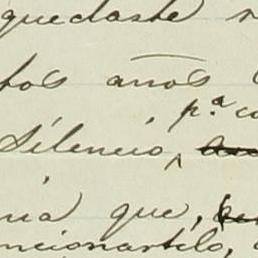 quedaste
tos años
p.ª
Silencio,
nia que,
ncionartelo,